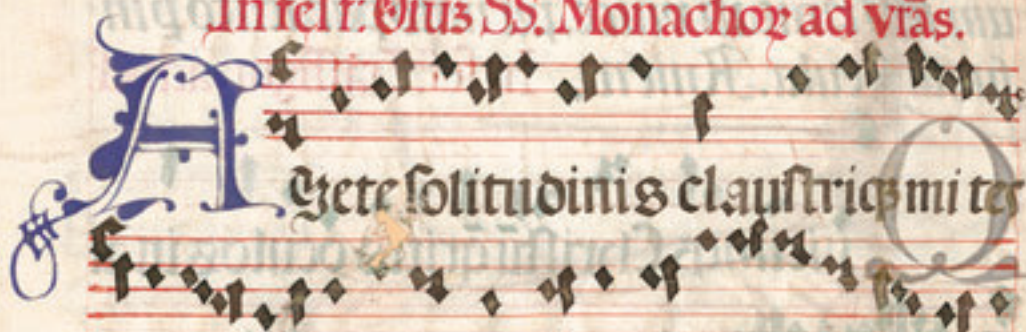 In fest. Oīuȝ SS. Monachoꝝ ad vr̄as.
AVete ſolitudinis clauſtriqȝ mites